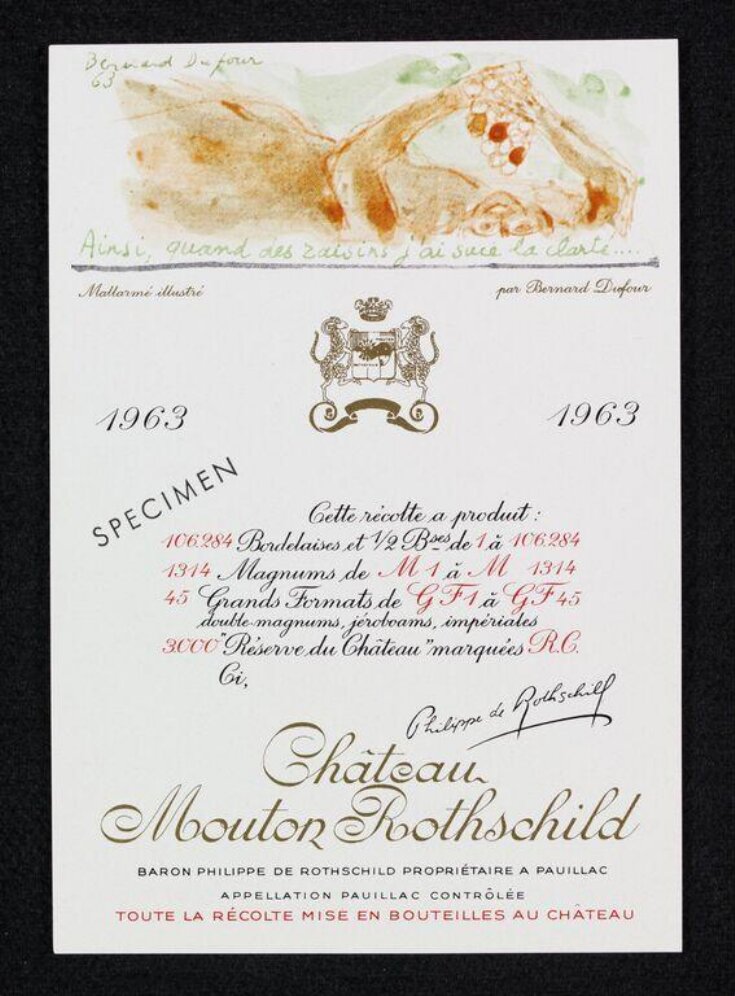 Bernard Dufour
63
Ainsi, quand des raisins j'ai sucé la clarté....
Mallarmé illustré
par Bernard Dufour
1963
1963
SPECIMEN
Cette récolte a produit :
106.284 Bordelaises et 1/2 Bses de 1 à 106.284
1314 Magnums de M 1 à M 1314
45 Grands Formats de G F 1 à G F 45
double magnums, jéroboams, impériales
3.000 "Réserve du Château" marquées R.C.
Ci,
Philippe de Rothschild
Château
Mouton Rothschild
BARON PHILIPPE DE ROTHSCHILD PROPRIÉTAIRE A PAUILLAC
APPELLATION PAUILLAC CONTRÔLÉE
TOUTE LA RÉCOLTE MISE EN BOUTEILLES AU CHÂTEAU